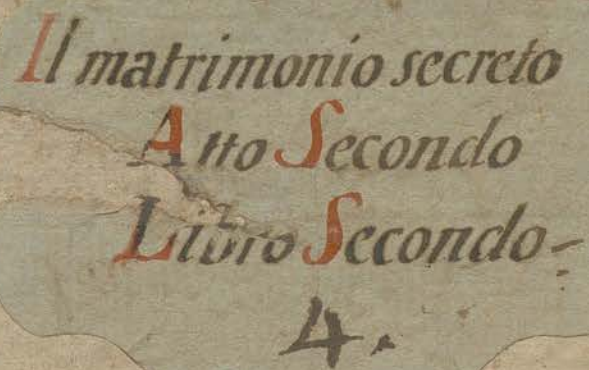 Il matrimonio secreto
Atto Secondo
Libro Secondo-
4.